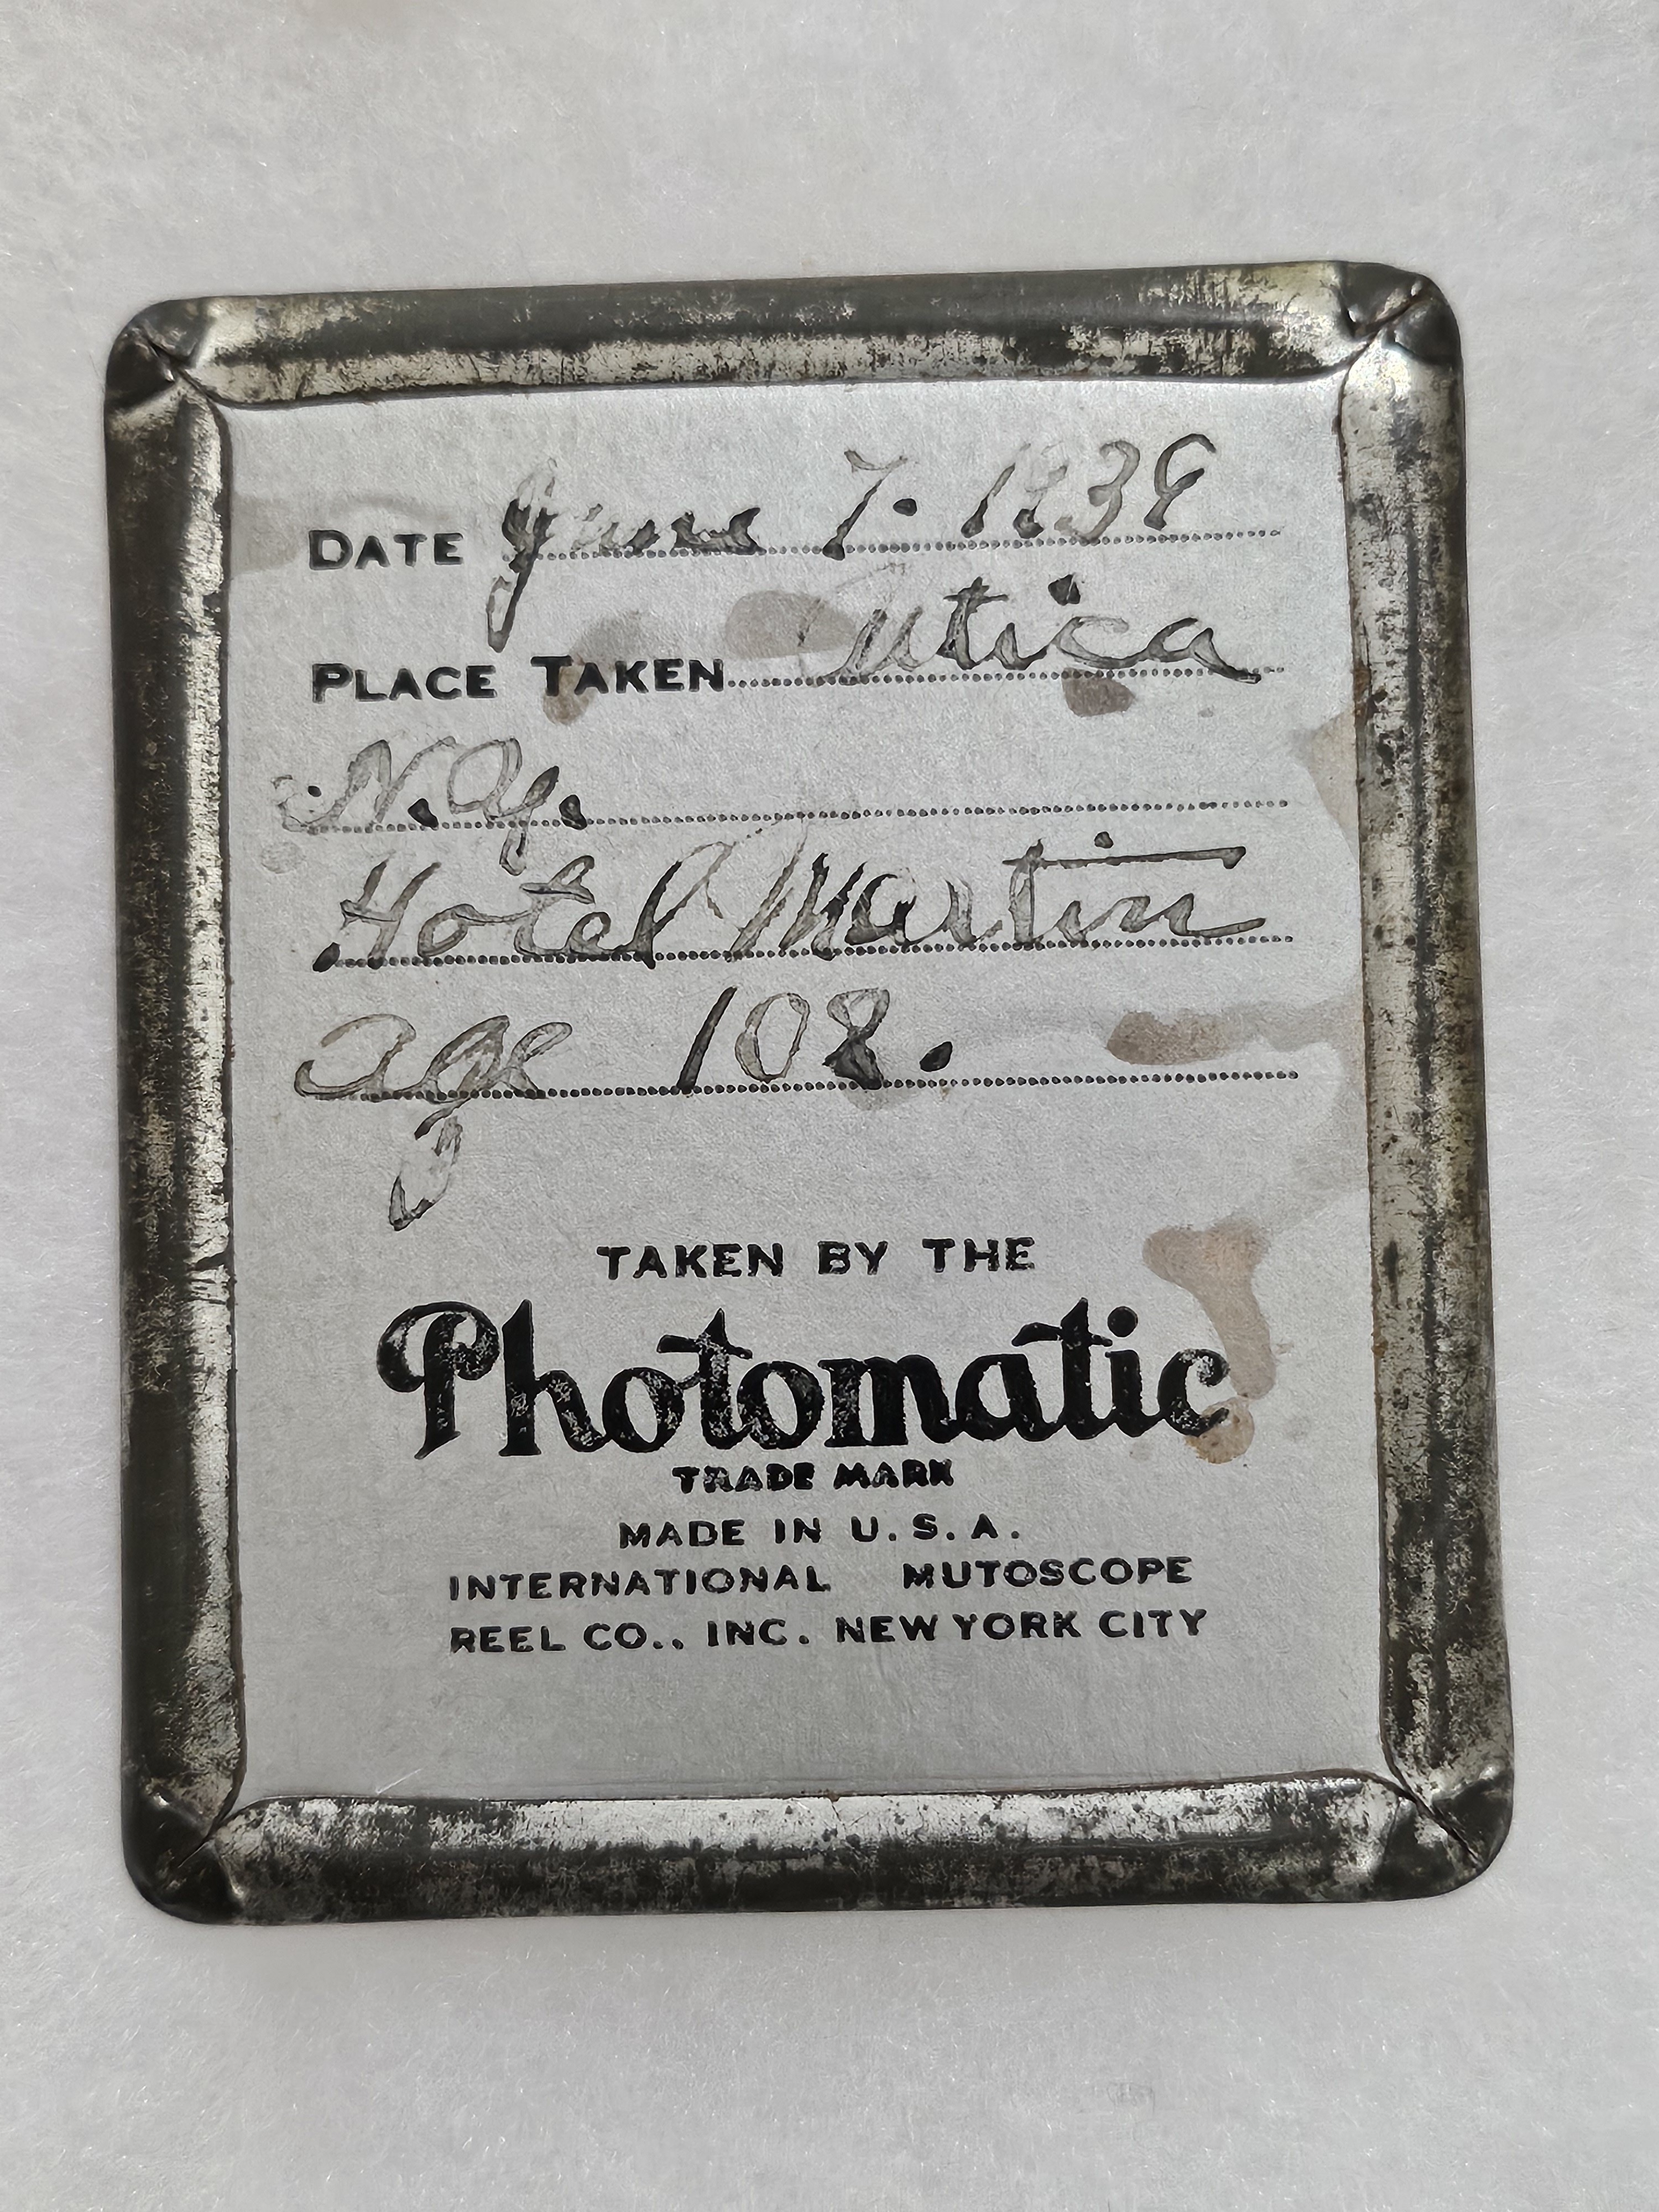 DATE June 7. 1939
PLACE TAKEN Utica
N.Y.
Hotel Martin
age 108.
TAKEN BY THE
Photomatic
TRADE MARK
MADE IN U.S.A.
INTERNATIONAL MUTOSCOPE
REEL CO., INC. NEW YORK CITY